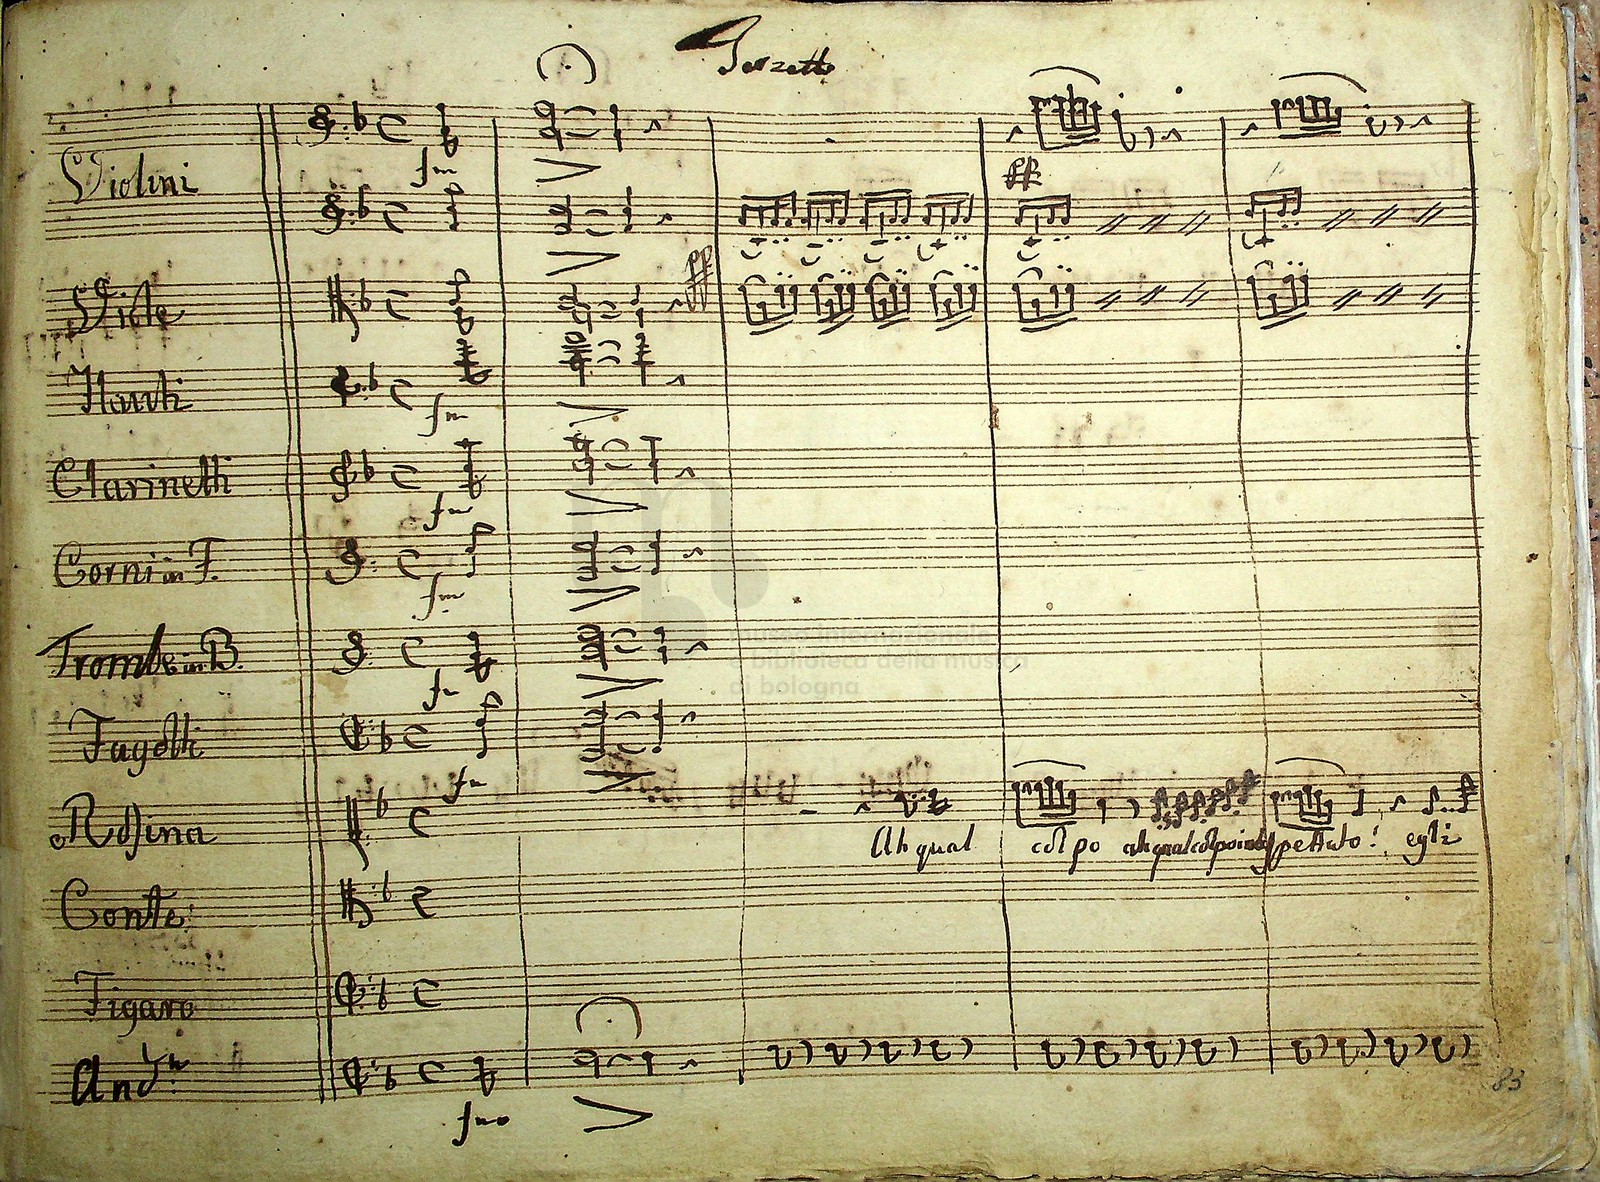 Terzetto
Violini
fmo
pp
Viole
pp
Flauti
fmo
Clarinetti
fmo
Corni in F.
fmo
Trombe in B.
fmo
museo internazionale
e biblioteca della musica
di bologna
Fagotti
fmo
Rosina
Ah qual colpo ah qual colpo inaspettato! egli
Conte
Figaro
And.no
fmo
83